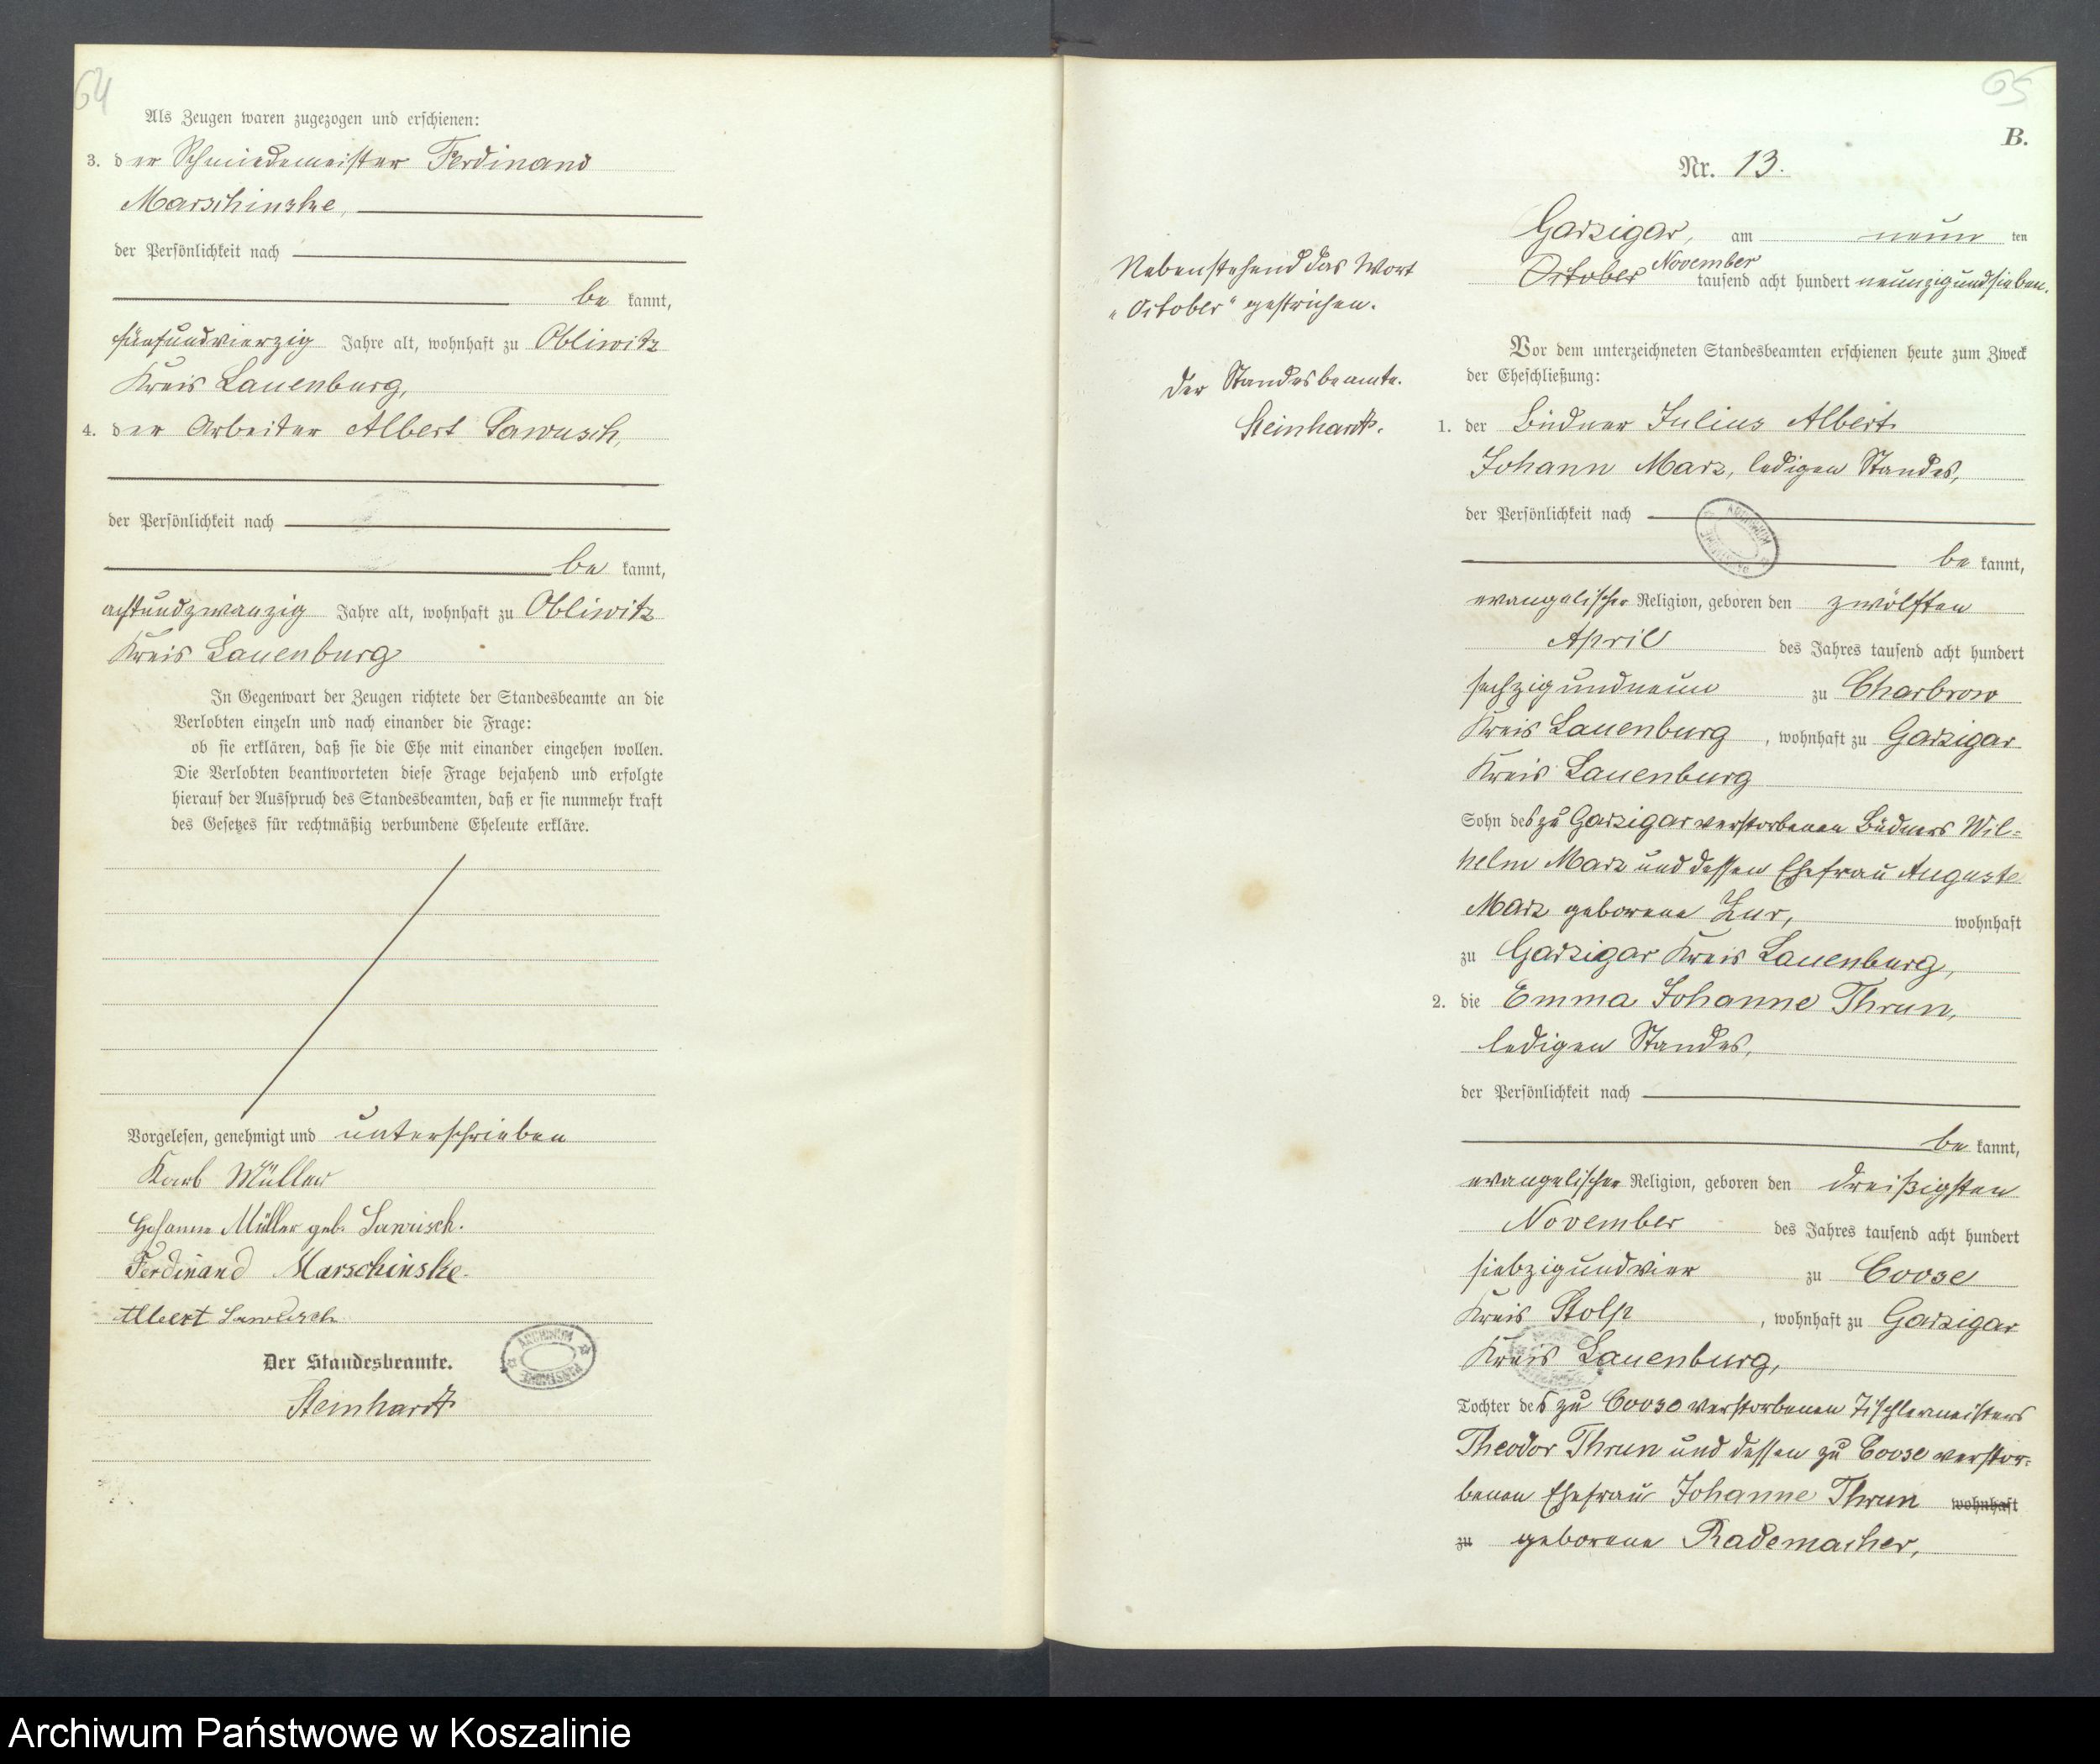 64
Als Zeugen waren zugezogen und erschienen:
3. der Schmiedemeister Ferdinand
Marschinske,
der Persönlichkeit nach
be kannt,
fünfundvierzig Jahre alt, wohnhaft zu Obliwitz
Kreis Lauenburg,
4. der Arbeiter Albert Sawusch,
der Persönlichkeit nach
be kannt,
achtundzwanzig Jahre alt, wohnhaft zu Obliwitz
Kreis Lauenburg
In Gegenwart der Zeugen richtete der Standesbeamte an die
Verlobten einzeln und nach einander die Frage:
ob sie erklären, daß sie die Ehe mit einander eingehen wollen.
Die Verlobten beantworteten diese Frage bejahend und erfolgte
hierauf der Ausspruch des Standesbeamten, daß er sie nunmehr kraft
des Gesetzes für rechtmäßig verbundene Eheleute erkläre.
Vorgelesen, genehmigt und unterschrieben
Karl Müller
Johanne Müller geb. Sawusch.
Ferdinand Marschinske.
Albert Sawusch
Der Standesbeamte.
Steinhardt
65
B.
Nr. 13.
Garzigar, am neun ten
October November tausend acht hundert neunzigundsieben.
Nebenstehend das Wort
"October" gestrichen.
Der Standesbeamte.
Steinhardt.
Vor dem unterzeichneten Standesbeamten erschienen heute zum Zweck
der Eheschließung:
1. der Büdner Julius Albert
Johann Marz, ledigen Standes,
der Persönlichkeit nach
be kannt,
evangelischer Religion, geboren den zwölften
April des Jahres tausend acht hundert
sechzigundneun zu Charbrow
Kreis Lauenburg, wohnhaft zu Garzigar
Kreis Lauenburg
Sohn des zu Garzigar verstorbenen Büdners Wil=
helm Marz und dessen Ehefrau Auguste
Marz geborene Zur, wohnhaft
zu Garzigar Kreis Lauenburg,
2. die Emma Johanne Thrun,
ledigen Standes,
der Persönlichkeit nach
be kannt,
evangelischer Religion, geboren den dreißigsten
November des Jahres tausend acht hundert
siebzigundvier zu Coose
Kreis Stolp, wohnhaft zu Garzigar
Kreis Lauenburg,
Tochter des zu Coose verstorbenen Tischlermeisters
Theodor Thrun und dessen zu Coose verstor=
benen Ehefrau Johanne Thrun wohnhaft
zu geborene Rademacher,
Archiwum Państwowe w Koszalinie